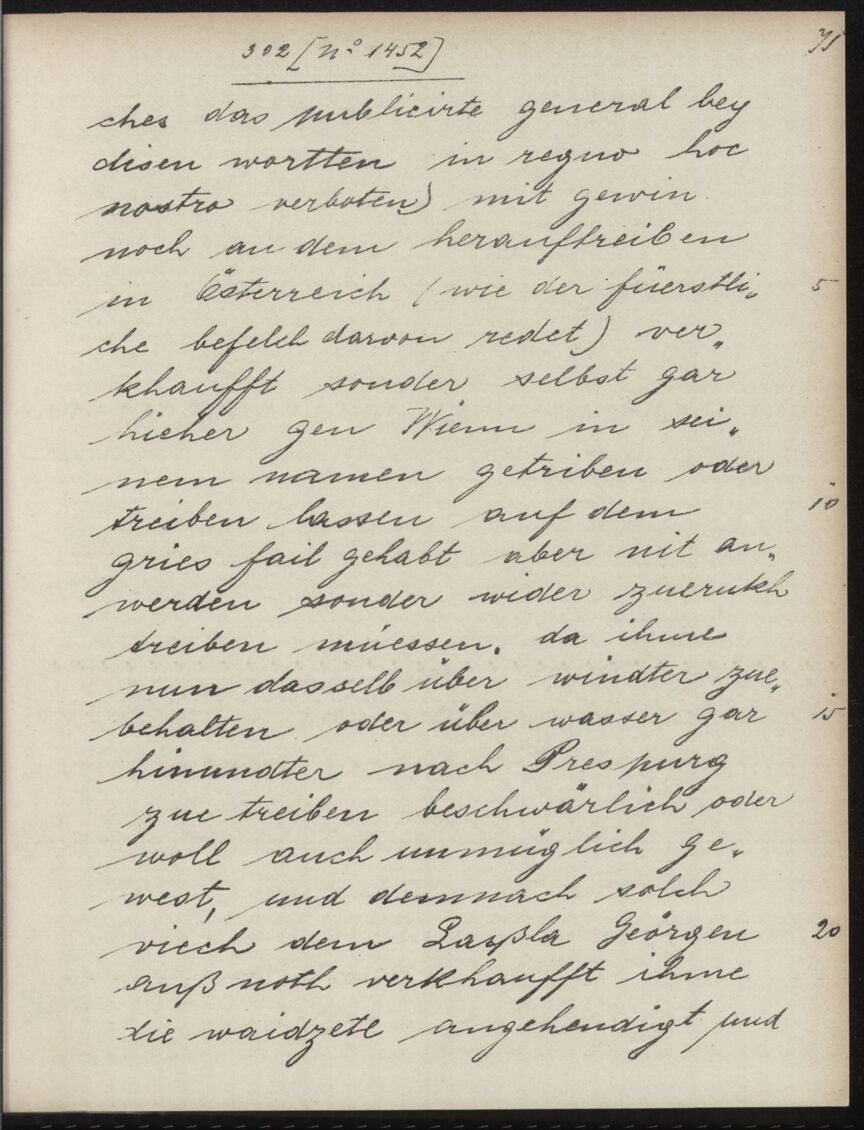 302 [No 1452]
71
ches das publicirte general bey
disen wortten in regno hoc
nostro verboten) mit gewin
noch an dem herauftreiben
in Österreich (wie der füerstli„ 5
che befelch darvon redet) ver„
khaufft sonder selbst gar
hieher gen Wienn in sei„
nem namen getriben oder
treiben lassen auf dem 10
gries fail gehabt aber nit an„
werden sonder wider zuerukh
treiben müessen. da ihme
nun dasselb über windter zue„
behalten oder über wasser gar 15
hinundter nach Prespurg
zue treiben beschwärlich oder
woll auch unmüglich ge„
west, und demnach solch
viech dem Laßla Geörgen 20
auß noth verkhaufft ihme
die waidzetl angehendigt und